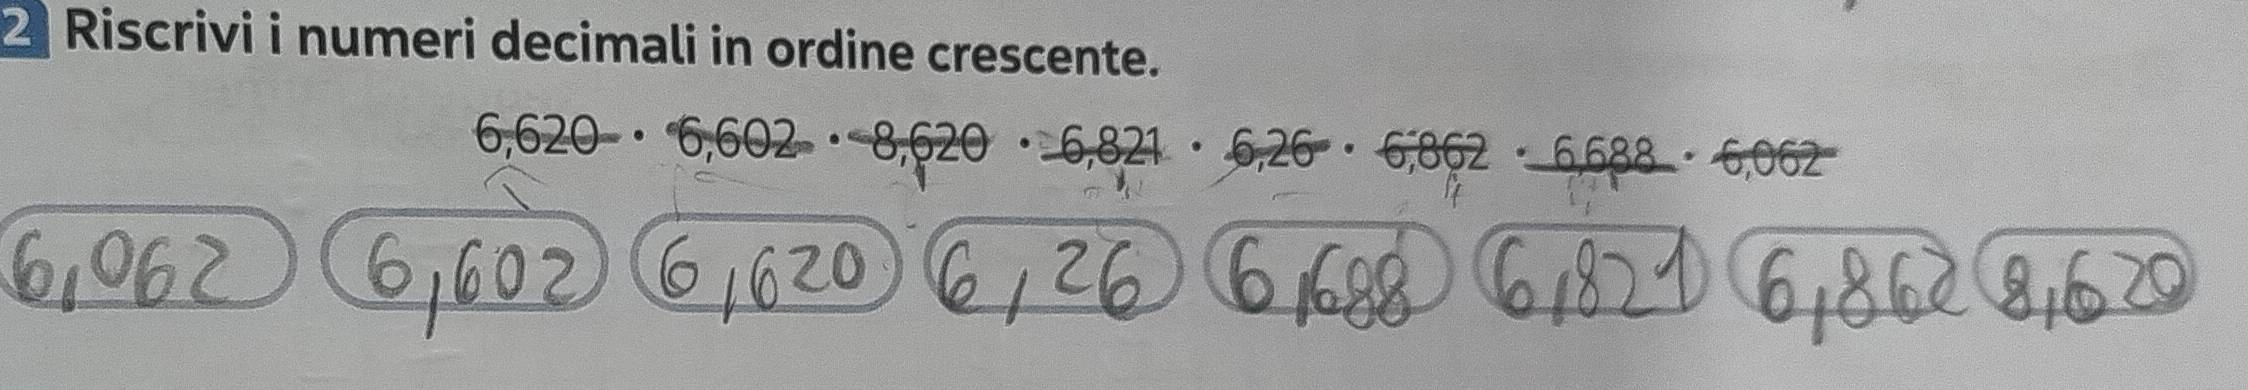 2 Riscrivi i numeri decimali in ordine crescente.
6,620 · 6,602 · 8,620 · 6,821 · 6,26 · 6,862 · 6,688 · 6,062
6,062 6,602 6,620 6,26 6,688 6,821 6,862 8,620